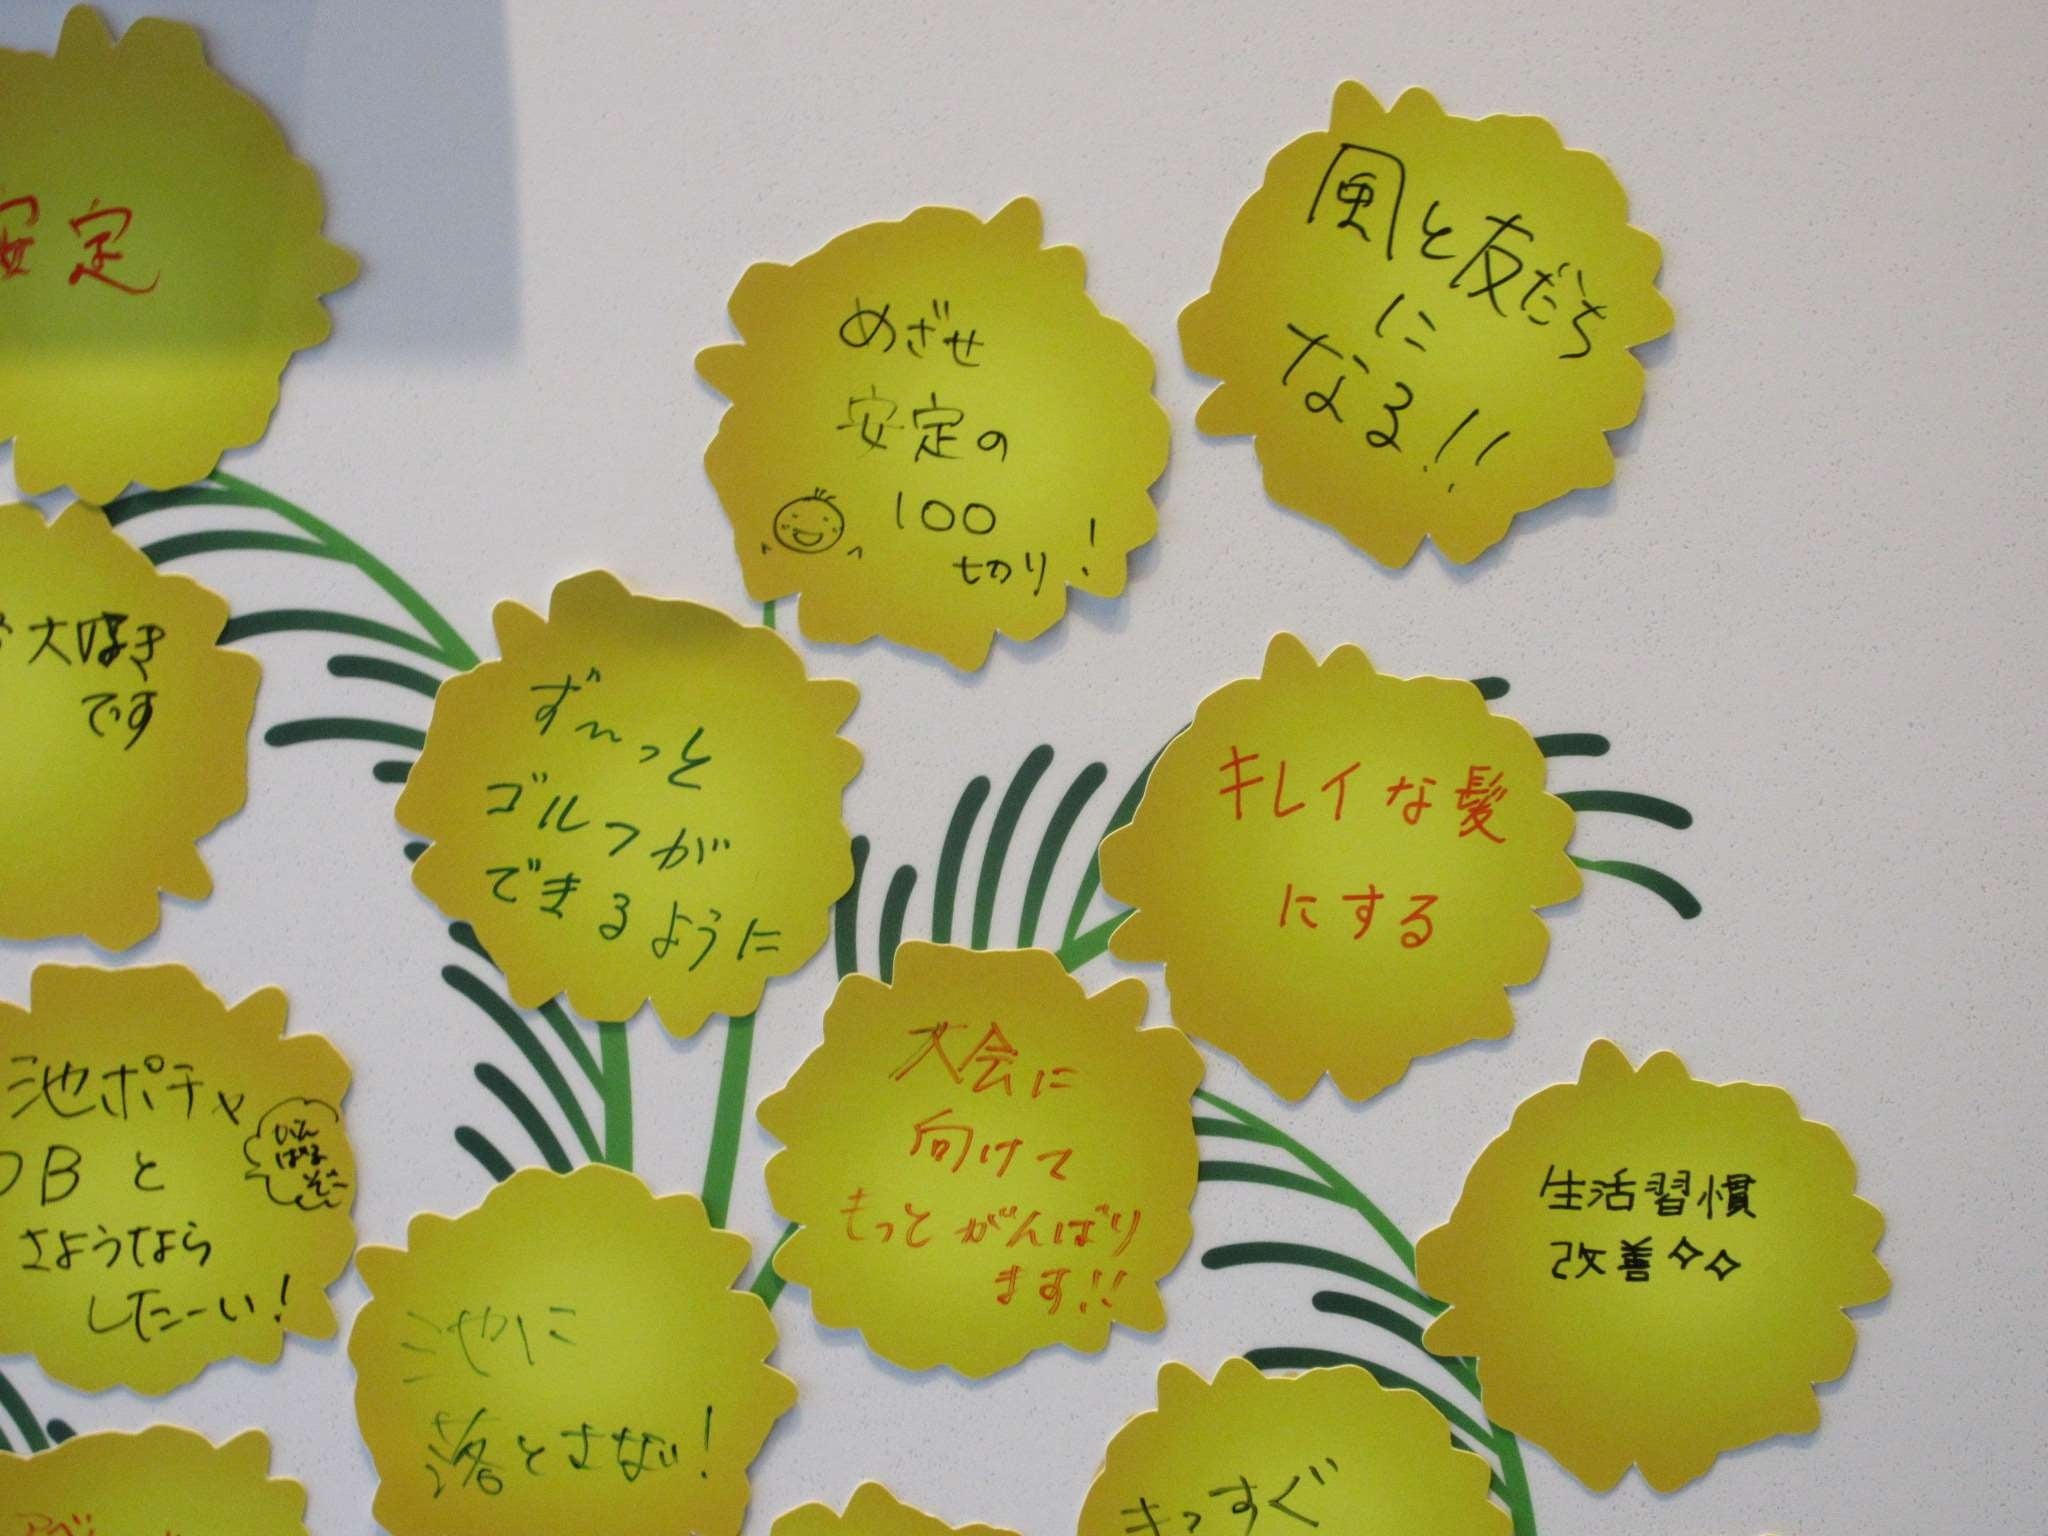 安定
めざせ
安定の
100
切り!
風と友だち
に
なる!!
大好き
です
ず〜っと
ゴルフが
できるように
キレイな髪
にする
池ポチャ
OBと
さようなら
したーい!
がん
ばる
ぞー
大会に
向けて
もっとがんばり
ます!!
生活習慣
改善✧✧
池に
落とさない!
まっすぐ